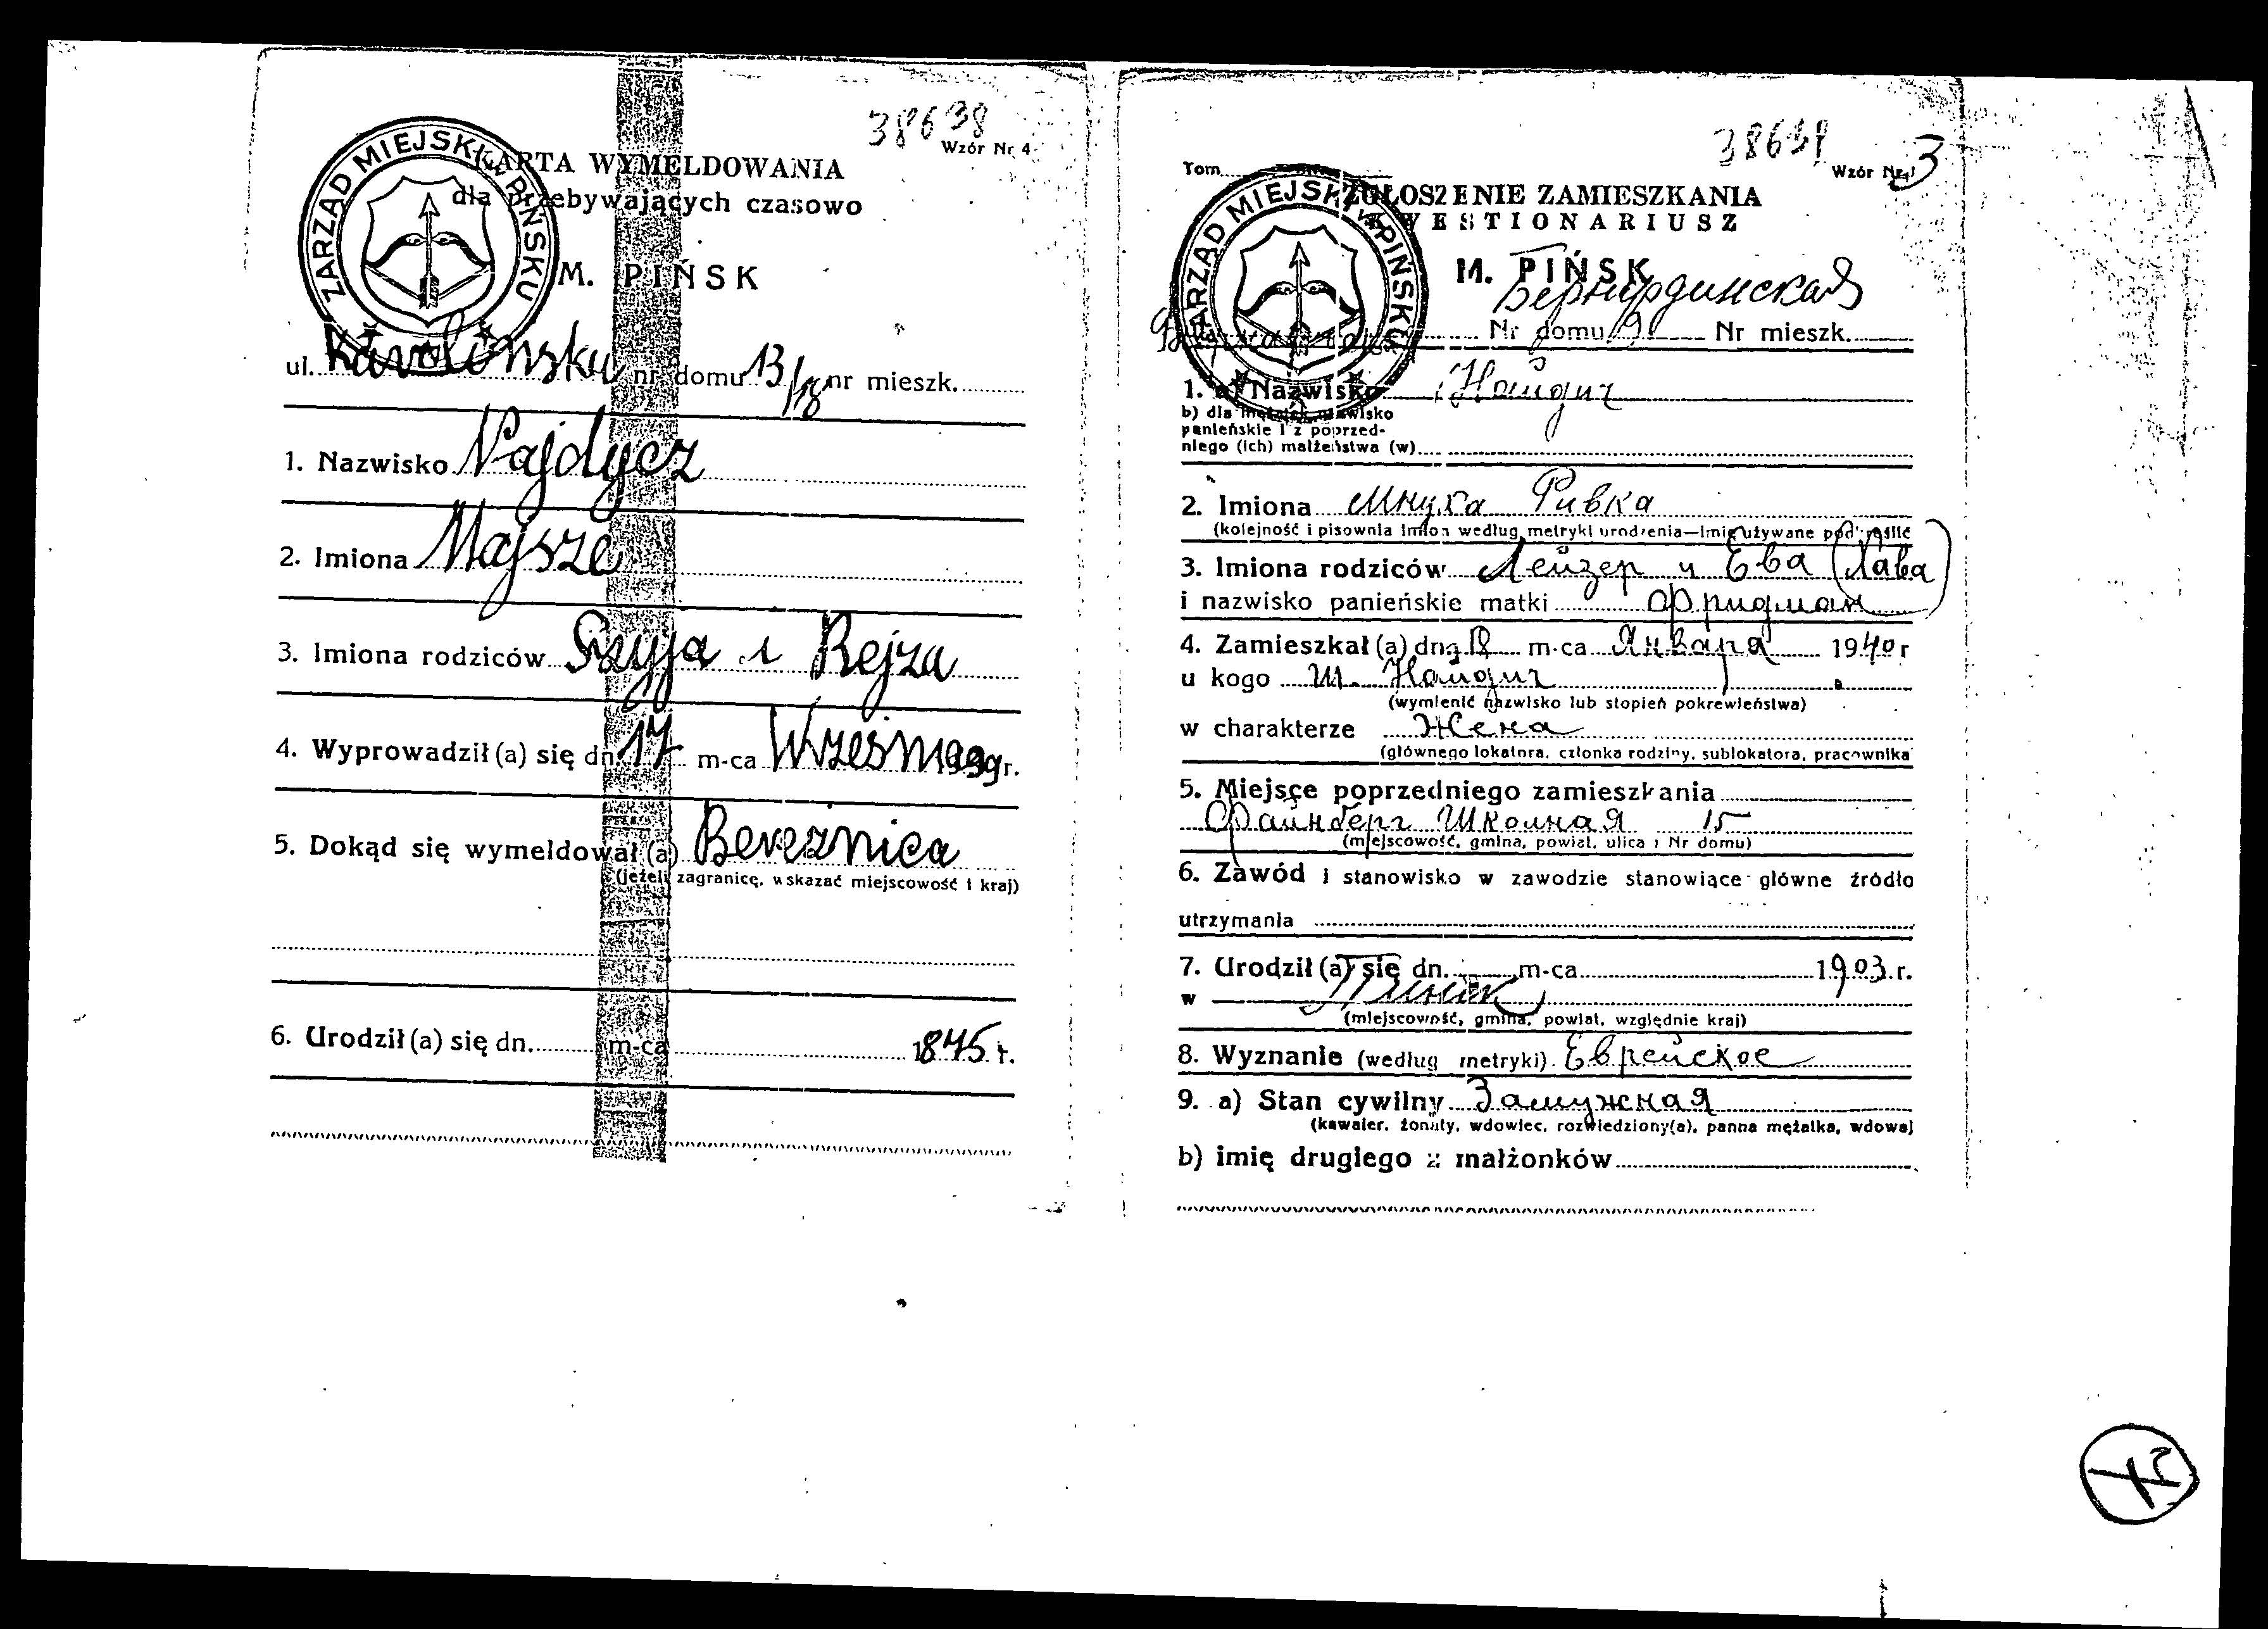 38638
Wzór Nr 4
ZARZĄD MIEJSKI w PIŃSKU
KARTA WYMELDOWANIA
dla przebywających czasowo
M. PIŃSK
ul. Karolińska nr domu 13/18 nr mieszk.
1. Nazwisko Najdycz
2. Imiona Majsze
3. Imiona rodziców Szyja i Rejza
4. Wyprowadził (a) się dn. 17 m-ca Września 1939 r.
5. Dokąd się wymeldował (a) Bereżnica
(jeżeli zagranicę, wskazać miejscowość i kraj)
6. Urodził (a) się dn. m-ca 1875 r.
Tom
Wzór Nr 3
ZARZĄD MIEJSKI w PIŃSKU
ZGŁOSZENIE ZAMIESZKANIA
KWESTIONARIUSZ
M. PIŃSK
Бернардинская
Nr domu 9 Nr mieszk.
1. a) Nazwisko Найдич
b) dla mężatek nazwisko
panieńskie i z poprzed-
niego (ich) małżeństwa (w)
2. Imiona Ривка
(kolejność i pisownia imion według metryki urodzenia—imię używane podkreślić
3. Imiona rodziców Лейзер и Ева (Хава)
i nazwisko panieńskie matki Фридман
4. Zamieszkał (a) dnia 18 m-ca Января 1940 r
u kogo Ш. Найдич
(wymienić nazwisko lub stopień pokrewieństwa)
w charakterze Жена
(głównego lokatora, członka rodziny, sublokatora, pracownika
5. Miejsce poprzedniego zamieszkania
Файнберг Школная 15
(miejscowość, gmina, powiat, ulica i Nr domu)
6. Zawód i stanowisko w zawodzie stanowiące główne źródło
utrzymania
7. Urodził (a) się dn. m-ca 1903 r.
w Пинск
(miejscowość, gmina, powiat, względnie kraj)
8. Wyznanie (według metryki) Еврейское
9. a) Stan cywilny Замужная
(kawaler, żonaty, wdowiec, rozwiedziony(a), panna mężatka, wdowa)
b) imię drugiego z małżonków